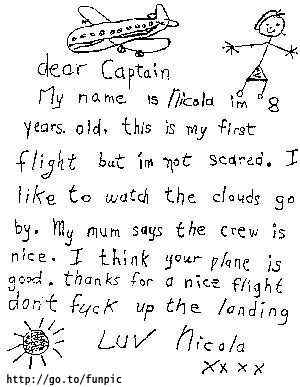 dear Captain
My name is Nicola im 8
years. old, this is my first
flight but im not scared. I
like to watch the clouds go
by. My mum says the crew is
nice. I think your plane is
good. thanks for a nice flight
don't fuck up the landing
LUV Nicola
xxxx
http://go.to/funpic